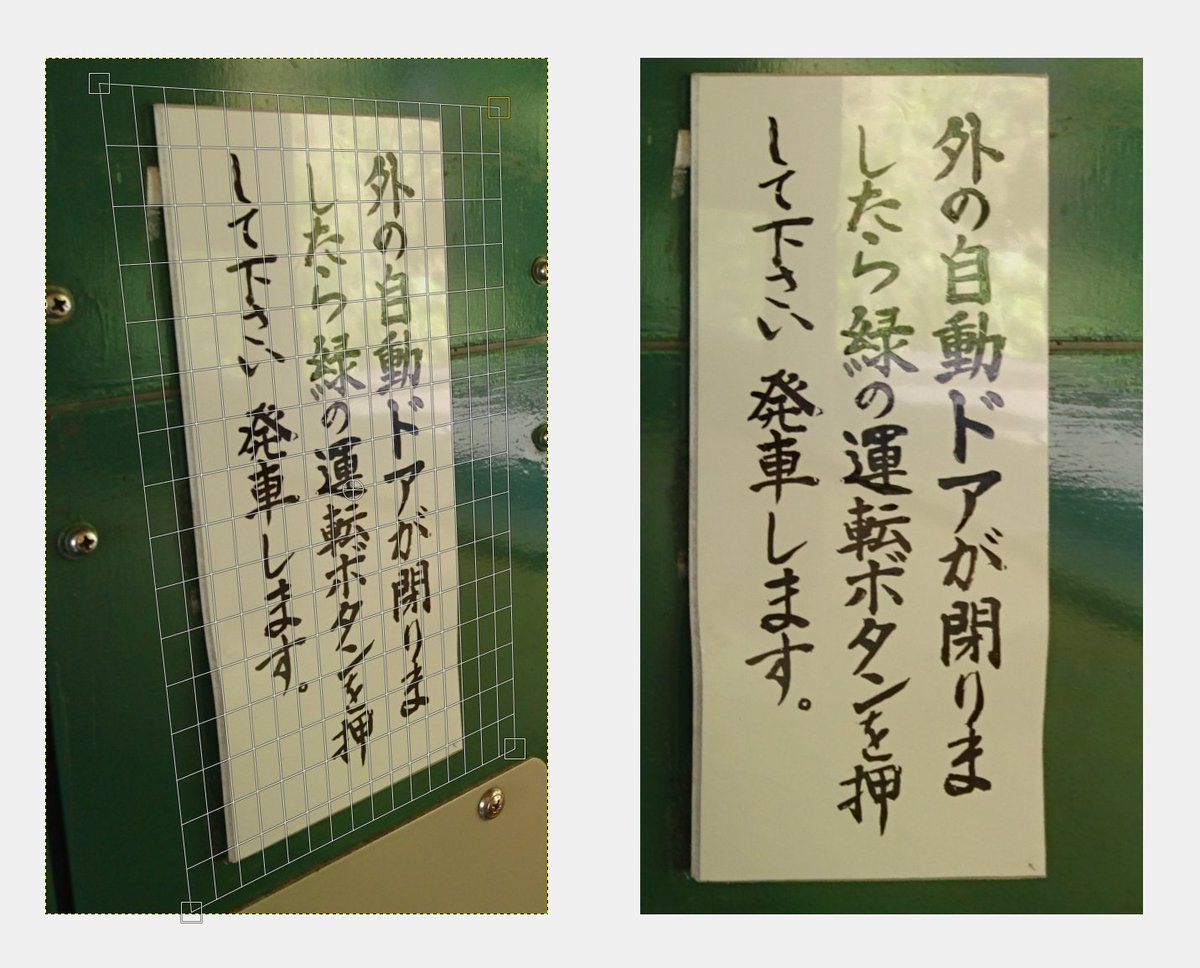 外の自動ドアが閉りま
したら緑の運転ボタンを押
して下さい 発車します。
外の自動ドアが閉りま
したら緑の運転ボタンを押
して下さい 発車します。